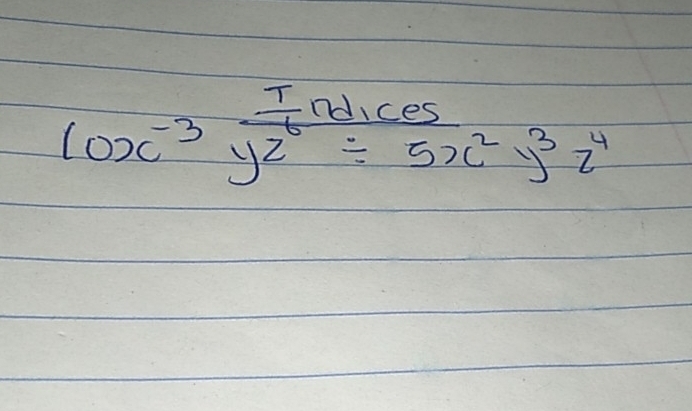 Indices
10x⁻³ yz⁶ ÷ 5x² y³ z⁴